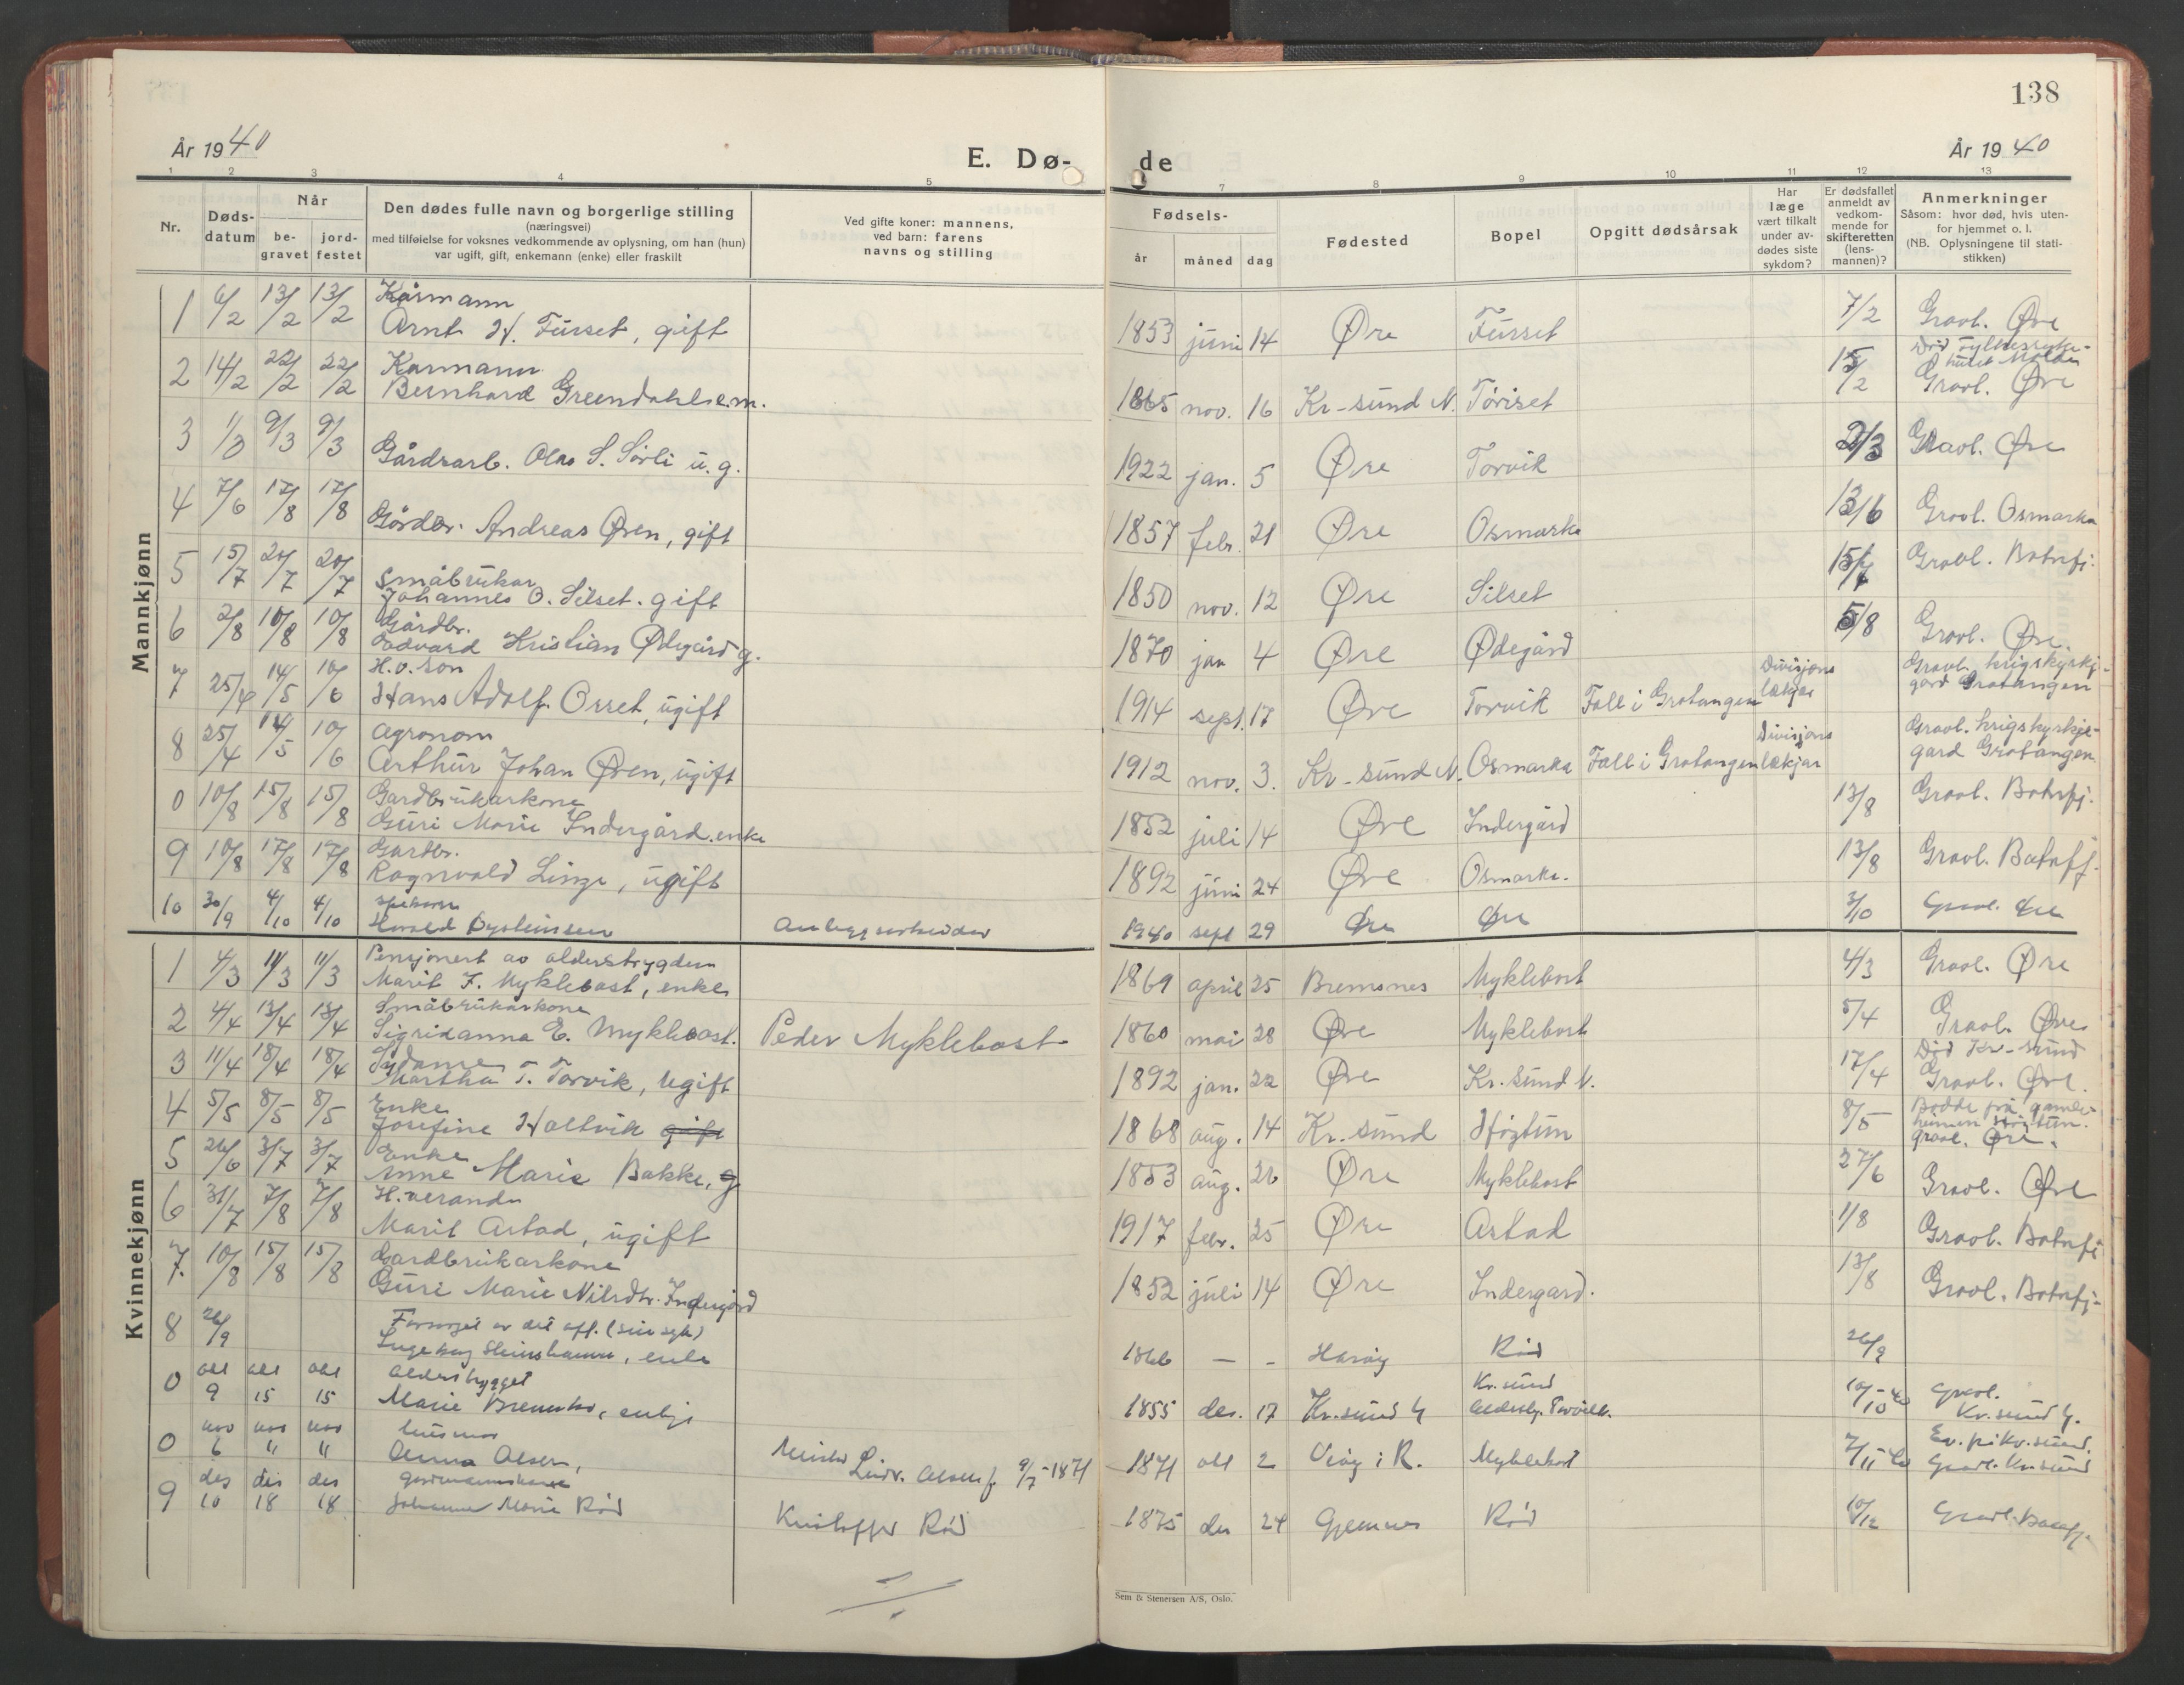 138
År 1940
E. Dø-
de
År 1940
1 2 3 4 5 7 8 9 10 11 12 13
Nr.
Døds-
datum
Når
be-
gravet
jord-
festet
Den dødes fulle navn og borgerlige stilling
(næringsvei)
med tilføielse for voksnes vedkommende av oplysning, om han (hun)
var ugift, gift, enkemann (enke) eller fraskilt
Ved gifte koner: mannens,
ved barn: farens
navns og stilling
Fødsels-
år måned dag
Fødested
Bopel
Opgitt dødsårsak
Har
læge
vært tilkalt
under av-
dødes siste
sykdom?
Er dødsfallet
anmeldt av
vedkom-
mende for
skifteretten
(lens-
mannen)?
Anmerkninger
Såsom: hvor død, hvis uten-
for hjemmet o. l.
(NB. Oplysningene til stati-
stikken)
Mannkjønn
Kårmann
1 6/2 13/2 13/2 Arnt H. Furset, gift 1853 juni 14 Øre Furset 7/2 Gravl. Øre
Karmann Død fylkessyke-
huset Molde
2 14/2 22/2 22/2 Bernhard Greendahl e.m. 1865 nov. 16 Kr-sund N. Toriset 15/2 Gravl. Øre
3 1/3 9/3 9/3 Gårdsarb. Olas S. Sørli u.g. 1922 jan. 5 Øre Torvik 2/3 Gravl. Øre
4 7/6 17/8 17/8 Gårdbr. Andreas Øren, gift 1857 febr. 21 Øre Osmarka 13/6 Gravl. Osmarka
småbrukar
5 15/7 20/7 20/7 Johannes O. Silset. gift 1850 nov. 12 Øre Silset 15/7 Gravl. Botnfj.
Gårdbr.
6 2/8 10/8 10/8 Edvard Kristian Ødegård g. 1870 jan 4 Øre Ødegård 5/8 Gravl. Øre.
H.v. son Divisjons Gravl. krigskyrkj-
7 25/4 14/5 10/6 Hans Adolf Orset, ugift 1914 sept. 17 Øre Torvik Fall i Gratangen lækjar gard Gratangen
agronom Divisjons Gravl. krigskyrkje-
8 25/4 14/5 10/6 Arthur Johan Øren, ugift 1912 nov. 3. Kr-sund N. Osmarka Fall i Gratangen lækjar gard Gratangen.
Gardbrukarkone
0 10/8 15/8 15/8 Guri Marie Indergård. enke 1852 juli 14 Øre Indergård 13/8 Gravl. Botnfj.
Gardbr.
9 10/8 17/8 17/8 Ragnvald Linge, ugift 1892 juni 24 Øre Osmarka. 13/8 Gravl. Batnfj.
spebarn
10 30/9 4/10 4/10 Harald Øysteinsen Anleggsarbeider 1940 sept 29 Øre Øre 3/10 Gravl. Øre
Kvinnekjønn
Pensjonert av alderstrygden
1 4/3 11/3 11/3 Marit F. Myklebost, enke 1869 april 25 Bremsnes Myklebost 4/3 Gravl. Øre
Småbrukarkone
2 4/4 13/4 13/4 Sigridanna E. Myklebost. Peder Myklebost 1860 mai 28 Øre Myklebost 5/4 Gravl. Øre
Sydame Død Kr-sund
3 11/4 18/4 18/4 Martha T. Torvik, ugift 1892 jan. 22 Øre Kr. sund N. 17/4 Gravl. Øre.
Enke
4 5/5 8/5 8/5 Josefine Holtvik gift 1868 aug. 14 Kr. sund Høgtun 8/5 gravl. Øre.
Enke
5 26/6 3/7 3/7 Anne Marie Bakke, g 1853 aug. 26 Øre Myklebost 27/6 Gravl. Øre
H. verande
6 31/7 7/8 7/8 Marit Astad, ugift 1917 febr. 25 Øre Astad 1/8 Gravl. Botnfj
Gardbrukarkone
7. 10/8 15/8 15/8 Guri Marie Nilsdtr. Indergård 1852 juli 14 Øre Indergard. 13/8 Gravl. Botnfj-
Forsorget av det off. (sinsyk)
8 26/9 Ingeborg Steinshamn, enke 1866 — - Harøy Rød 26/9
Alderstrygdet Kr. sund
0 okt 9 okt 15 okt 15 Marie Bremsho, enke 1855 des. 17 Kr. sund N 10/10-40 Gravl.
Kr. sund N.
husmor
0 nov 6 nov " nov " Anna Olsen, Ludv. Olsen f. 9/7-1871 1871 okt 2 Veøy i R. Myklebost 7/11-40 Gravl. Kr. sund
gardmannskone
9 des 10 des 18 des 18 Johanne Marie Rød Kristoffer Rød 1875 des 24 Gjemnes Rød 10/12 Gravl. Batnfj.
Sem & Stenersen A/S, Oslo.